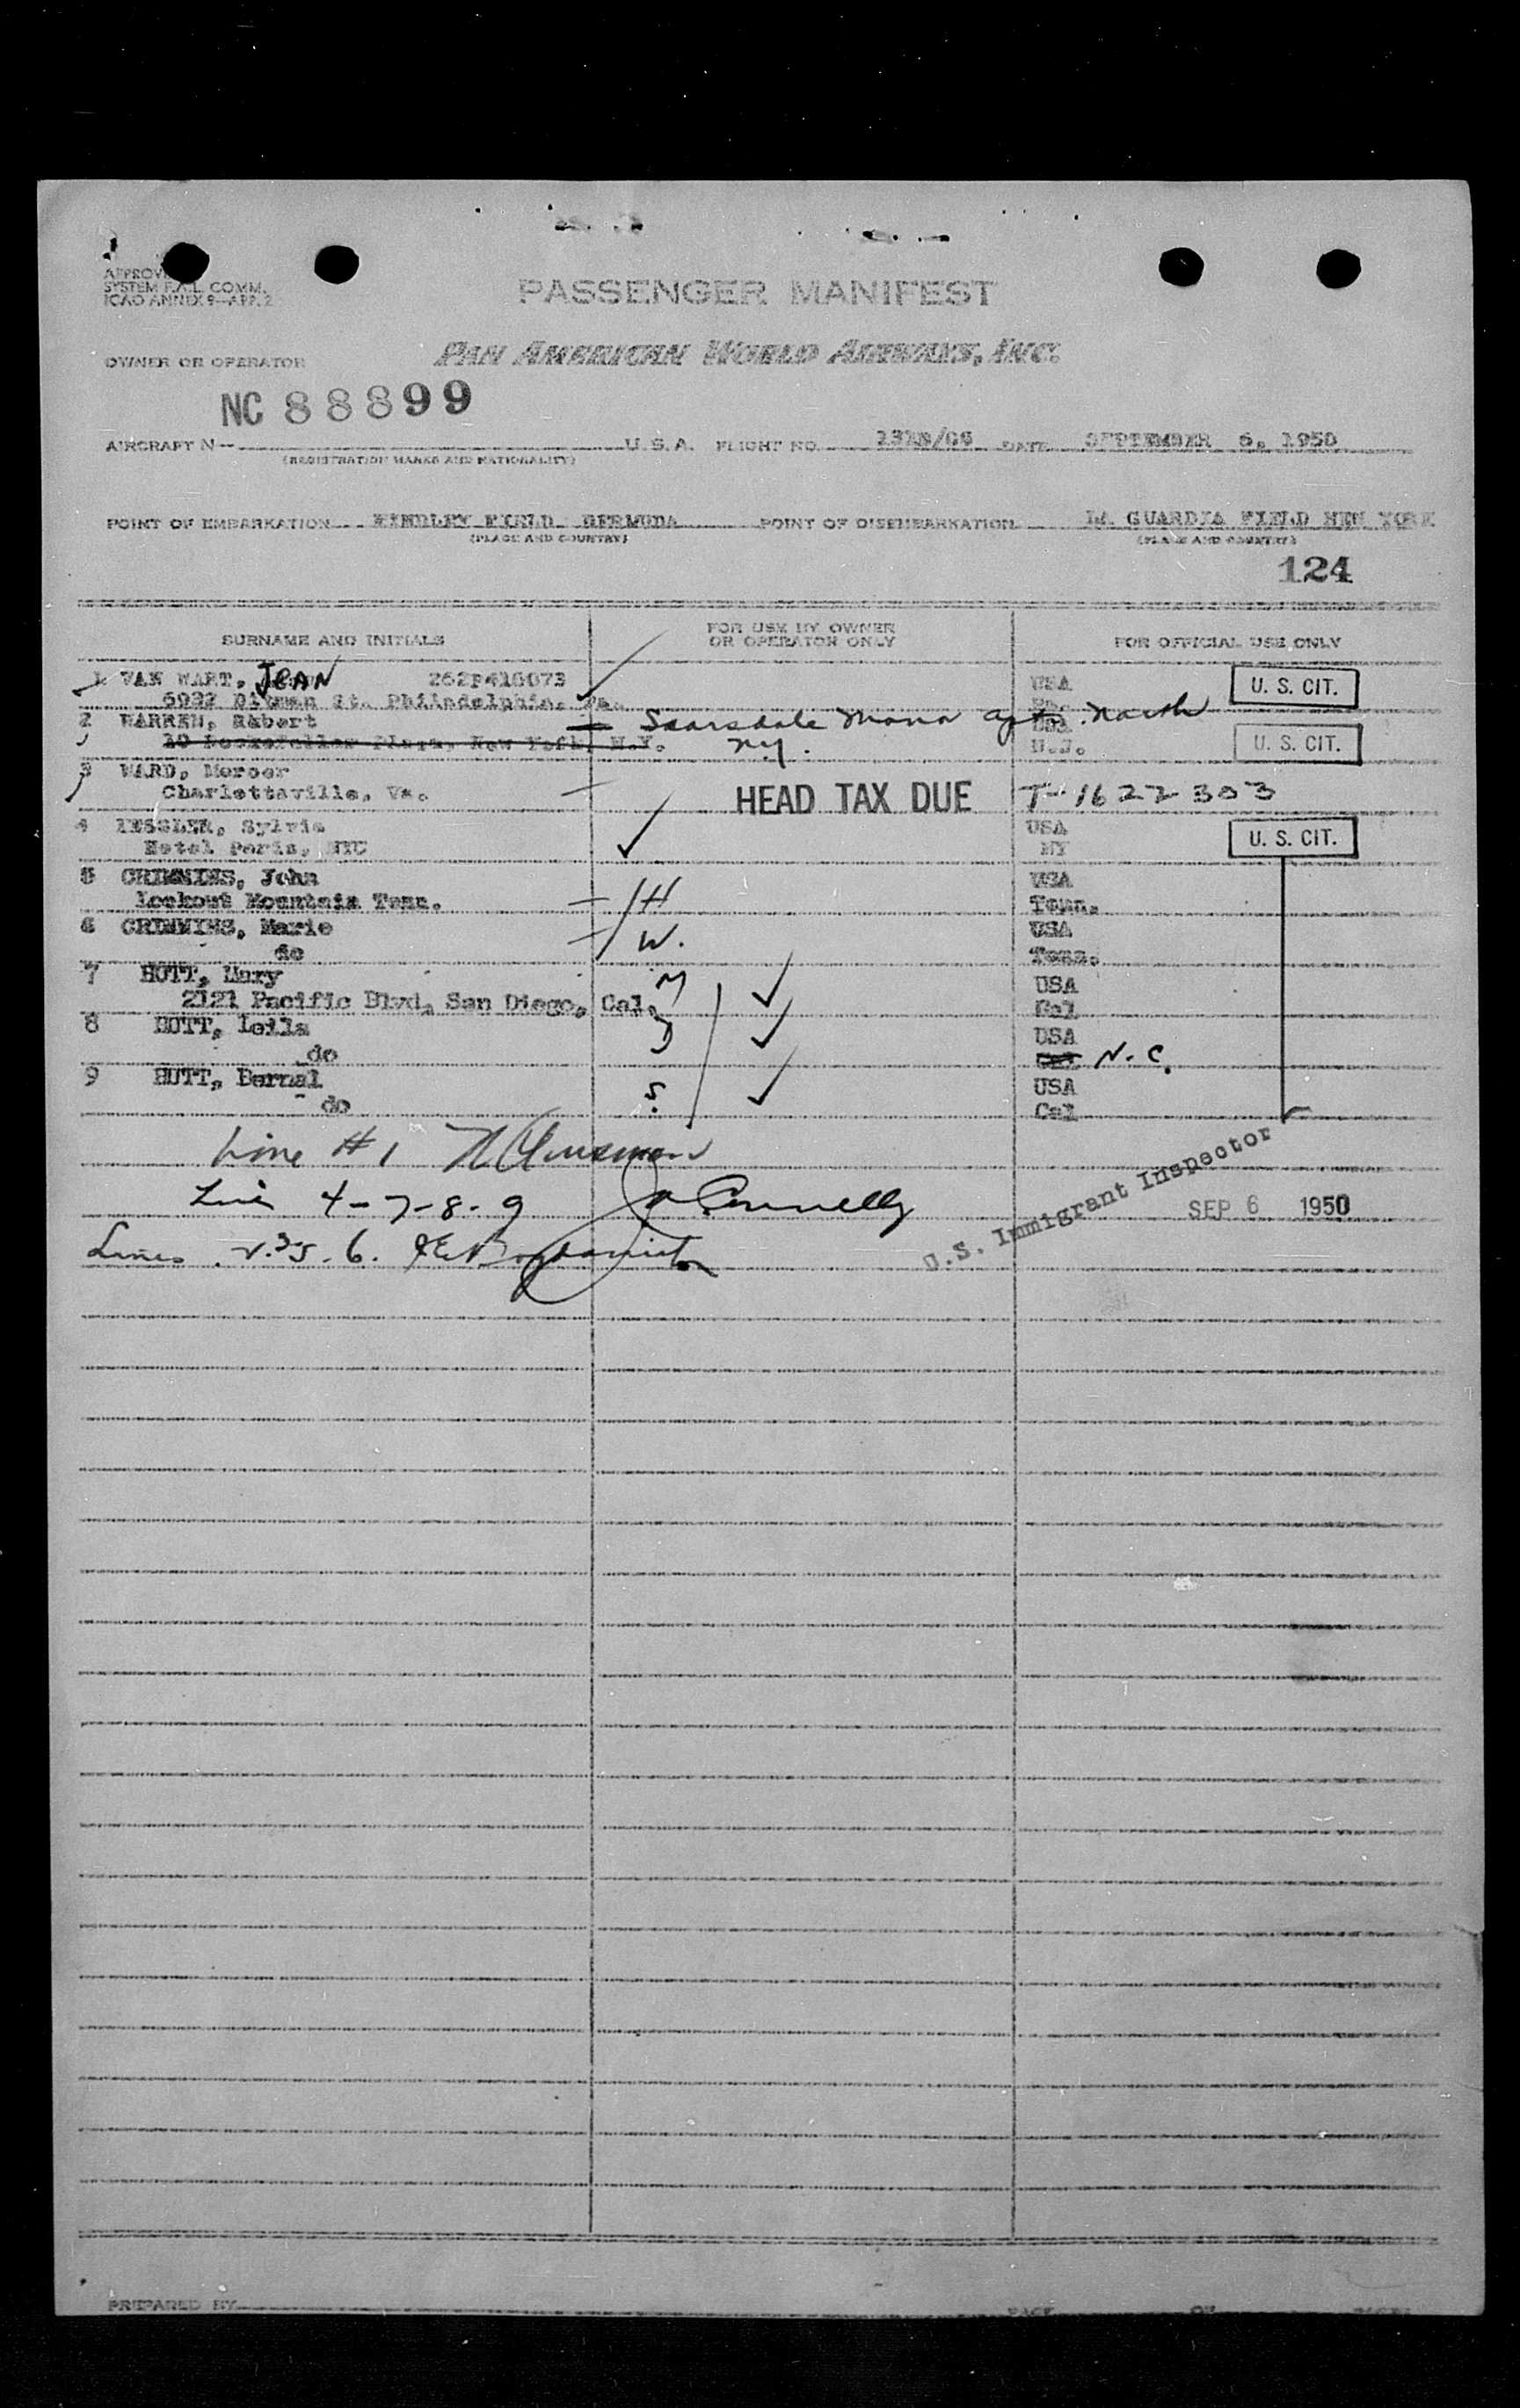 SYSTEM F.A.L. COMM.
ICAO ANNEX 9-APP. 2
PASSENGER MANIFEST
OWNER OR OPERATOR PAN AMERICAN WORLD AIRWAYS, INC.
NC 88899
AIRCRAFT N-- U. S. A. FLIGHT NO. DATE SEPTEMBER 6, 1950
(REGISTRATION MARKS AND NATIONALITY)
POINT OF EMBARKATION KINDLEY FIELD BERMUDA POINT OF DISEMBARKATION LA GUARDIA FIELD NEW YORK
(PLACE AND COUNTRY) (PLACE AND COUNTRY)
124
SURNAME AND INITIALS FOR USE BY OWNER OR OPERATOR ONLY FOR OFFICIAL USE ONLY
1 VAN WART, JEAN USA U. S. CIT.
St. Philadelphia, Pa.
2 WARREN, Robert Scarsdale Manor Apts. North
10 Rockefeller Plaza, New York, N.Y. N.Y. U. S. CIT.
3 WARD, Mercer
Charlottaville, Va. HEAD TAX DUE T-1622303
4 Sylvia USA U. S. CIT.
Hotel Paris, NYC NY
5 CRIMMINS, John H USA
Lookout Mountain Tenn. Tenn.
6 CRIMMINS, Marie W. USA
do Tenn.
7 HUTT, Mary M USA
2121 Pacific Blvd, San Diego, Cal. Cal
8 HUTT, Leila D USA
do Cal N.C.
9 HUTT, Bernal S. USA
do Cal
Line #1
Line 4-7-8-9 Connelly
U.S. Immigrant Inspector
SEP 6 1950
Lines
PREPARED BY PAGE OF PAGES